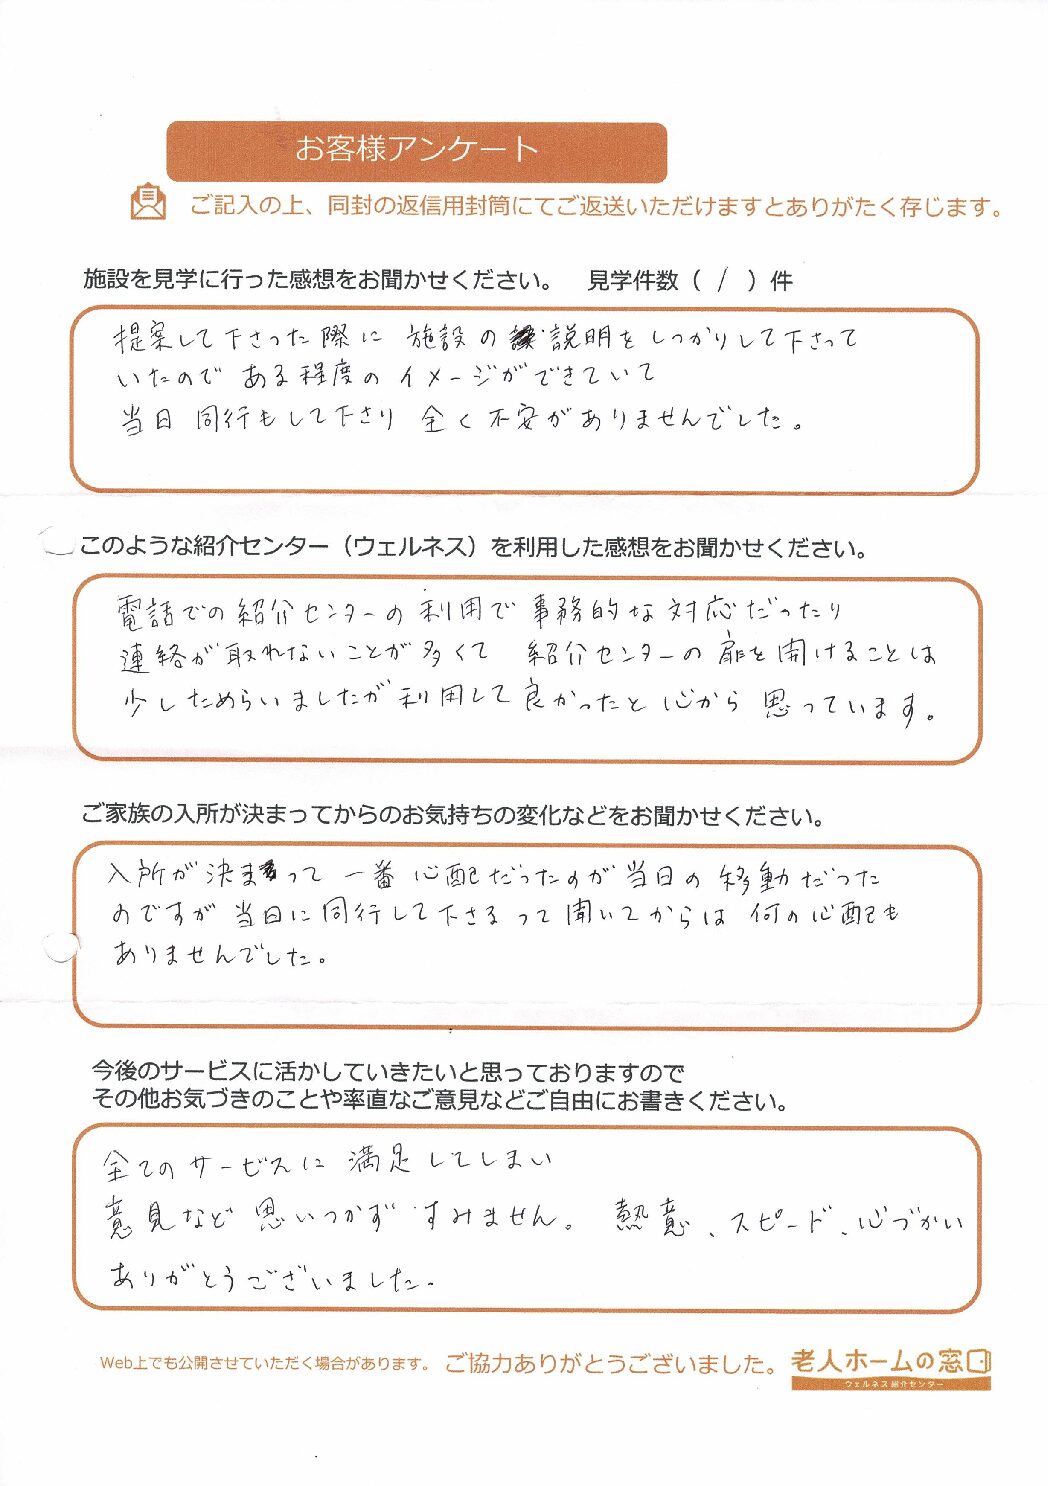 お客様アンケート
ご記入の上、同封の返信用封筒にてご返送いただけますとありがたく存じます。
施設を見学に行った感想をお聞かせください。　見学件数（ / ）件
提案して下さった際に 施設の 説明をしっかりして下さって
いたので ある程度の イメージができていて
当日 同行もして下さり 全く不安がありませんでした。
このような紹介センター（ウェルネス）を利用した感想をお聞かせください。
電話での紹介センターの利用で 事務的な対応だったり
連絡が取れないことが多くて 紹介センターの扉を開けることは
少しためらいましたが利用して良かったと心から思っています。
ご家族の入所が決まってからのお気持ちの変化などをお聞かせください。
入所が決まって 一番心配だったのが当日の移動だった
のですが当日に同行して下さるって聞いてからは 何の心配も
ありませんでした。
今後のサービスに活かしていきたいと思っておりますので
その他お気づきのことや率直なご意見などご自由にお書きください。
全てのサービスに 満足してしまい
意見など思いつかず すみません。 熱意、スピード、心づかい
ありがとうございました。
Web上でも公開させていただく場合があります。 ご協力ありがとうございました。 老人ホームの窓口
ウェルネス紹介センター